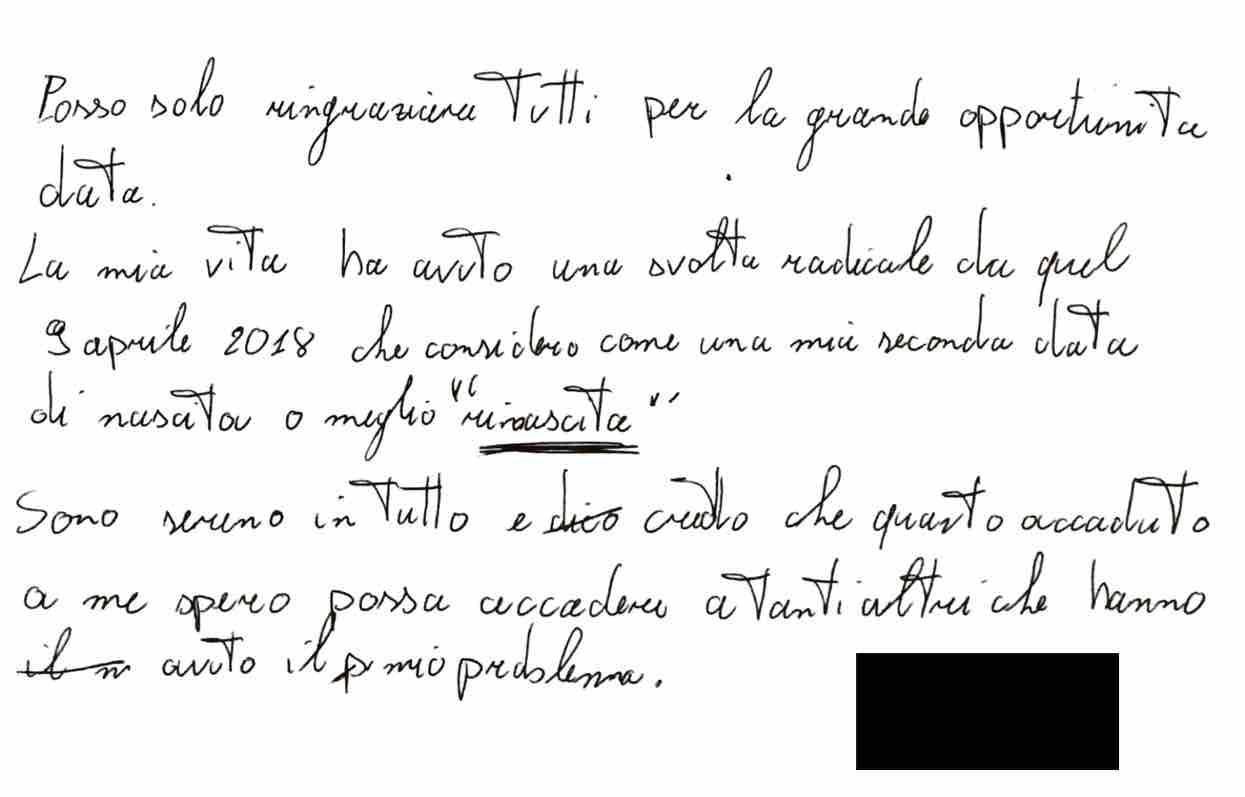 Posso solo ringraziare Tutti per la grande opportunita
data.
La mia vita ha avuto una svolta radicale da quel
9 aprile 2018 che considero come una mia seconda data
di nascita o meglio "rinascita"
Sono sereno in Tutto e dico credo che quanto accaduto
a me spero possa accadere a Tanti altri che hanno
il m avuto il p mio problema.